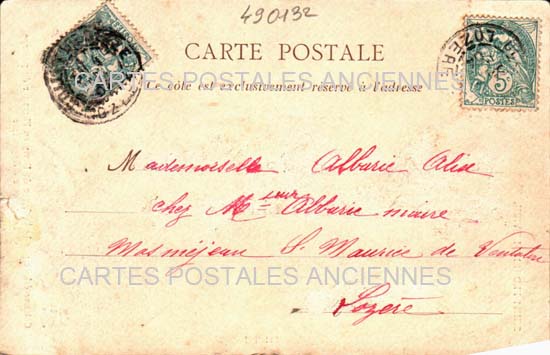 490132
CARTE POSTALE
Ce côté est exclusivement réservé à l'adresse
CARTES POSTALES ANCIENNES
Mademoiselle Albarie Alix
chez Mr Albarie maire
Masméjean St Maurice de Ventalon
CARTES POSTALES ANCIENNES
Lozère
LOZERE
5
POSTES